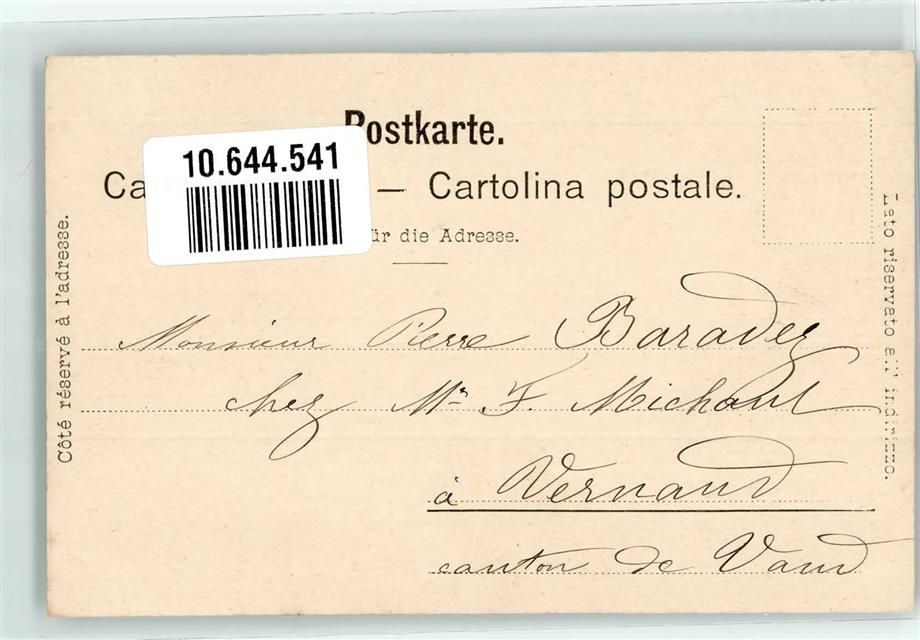 Postkarte.
10.644.541
Ca — Cartolina postale.
ür die Adresse.
Côté réservé à l'adresse.
Lato riservato all'indirizzo.
Monsieur Pierre Baradez
chez Mr F. Michaud
à Vernand
canton de Vaud